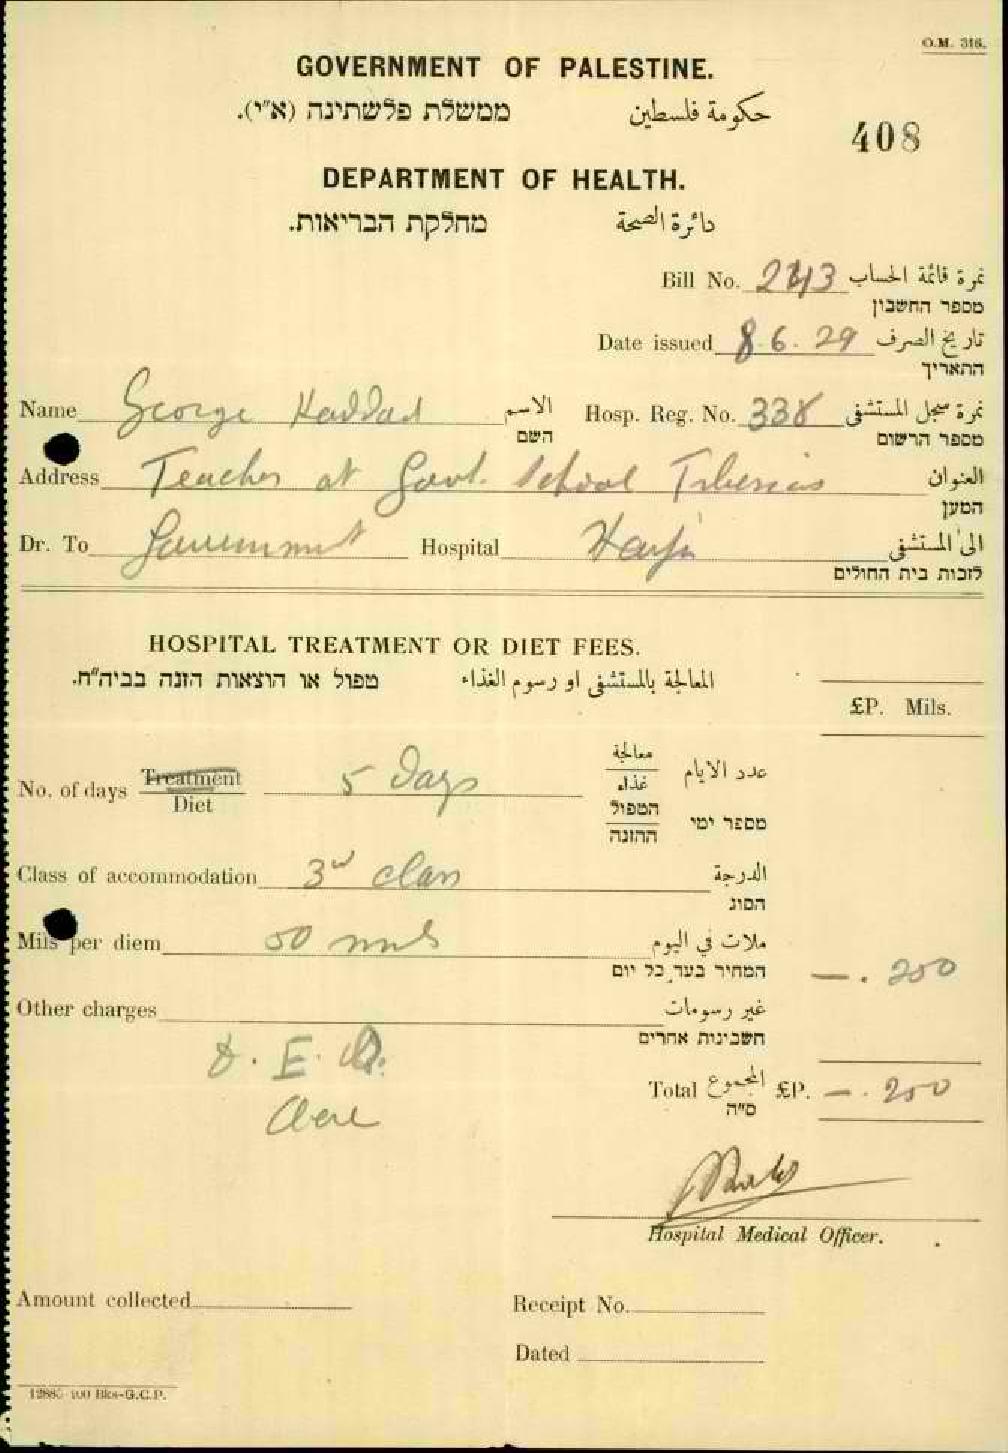 O.M. 316.
GOVERNMENT OF PALESTINE.
ממשלת פלשתינה (א"י). حكومة فلسطين
408
DEPARTMENT OF HEALTH.
מחלקת הבריאות. دائرة الصحة
Bill No. 2113 نمرة قائمة الحساب
מספר החשבון
Date issued 8.6.29 تاريخ الصرف
התאריך
Name George Haddad الاسم Hosp. Reg. No. 338 نمرة سجل المستشفى
השם מספר הרשום
Address Teacher at Govt. School Tiberias العنوان
המען
Dr. To Government Hospital Haifa الى المستشفى
לזכות בית החולים
HOSPITAL TREATMENT OR DIET FEES.
טפול או הוצאות הזנה בביה"ח. المعالجة بالمستشفى او رسوم الغذاء
£P. Mils.
No. of days Treatment 5 days معالجة عدد الايام
Diet غذاء
הטפול מספר ימי
ההזנה
Class of accommodation 3rd class الدرجة
הסוג
Mils per diem 50 mils ملات في اليوم
המחיר בעד כל יום —. 250
Other charges غير رسومات
חשבינות אחרים
D. E. O.
Acre
Total المجموع £P. —. 250
ס"ה
Hospital Medical Officer.
Amount collected Receipt No.
Dated
100 Bks-G.C.P.